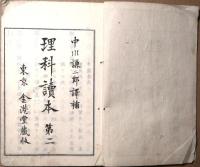 中川謙二郎譯補
理科讀本 第二
東京 金港堂藏版